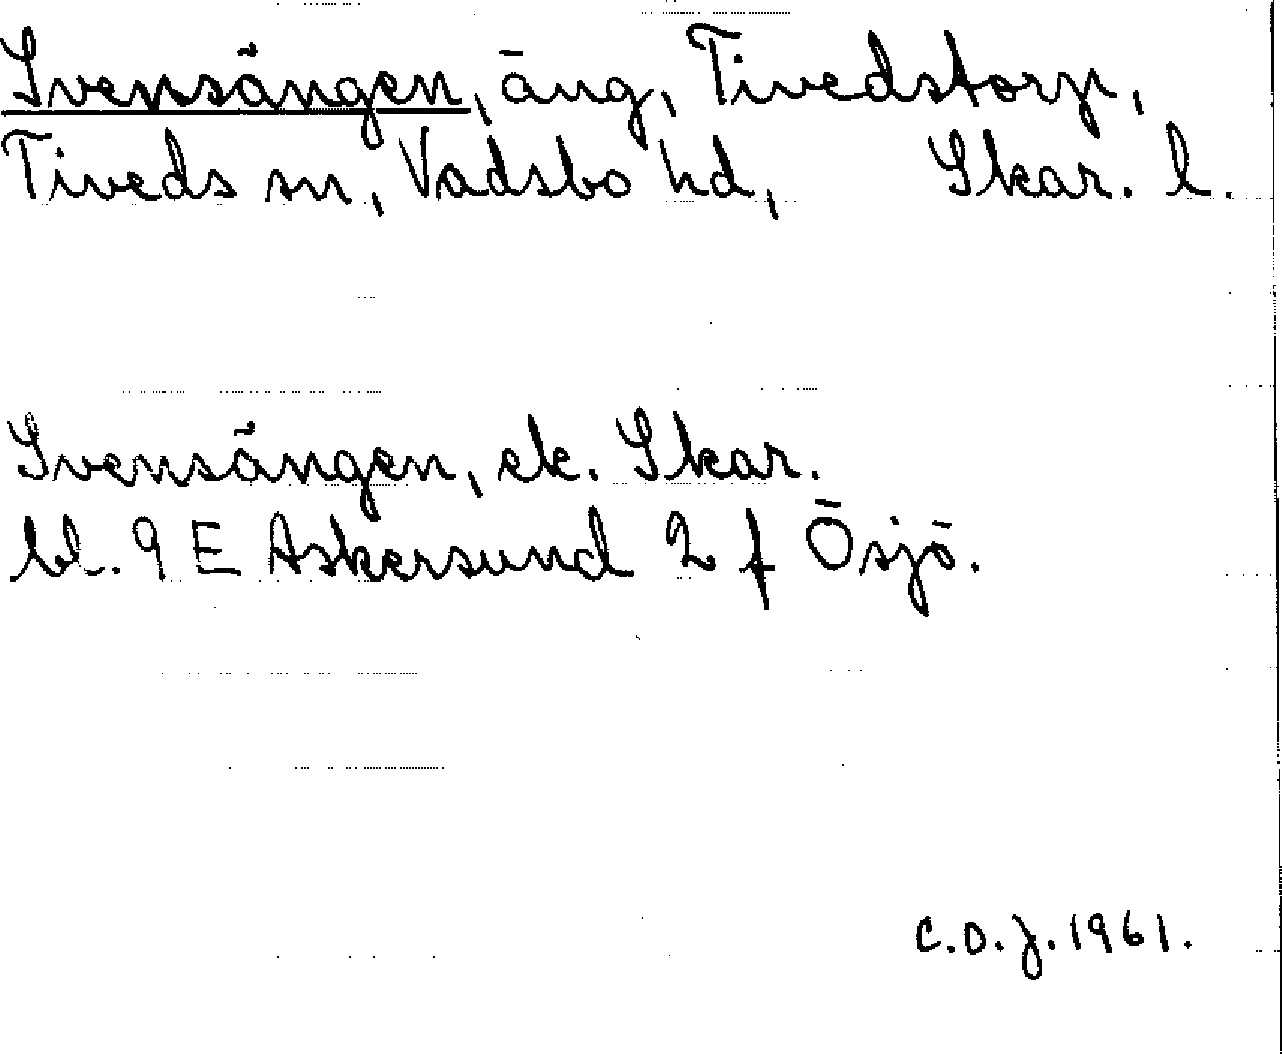 Svensängen, äng, Tivedstorp,
Tiveds sn, Vadsbo hd, Skar. l.
Svensängen, ek. Skar.
bl. 9 E Askersund 2 f Ösjö.
C.O.J. 1961.